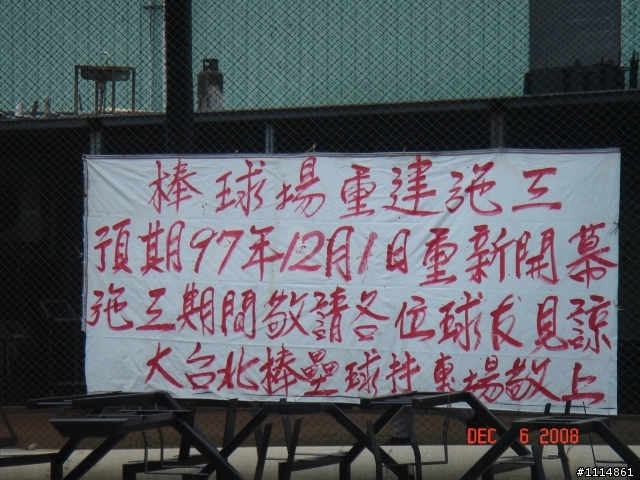 棒球場重建施工
預期97年12月1日重新開幕
施工期間敬請各位球友見諒
大台北棒壘球打擊場敬上
DEC 6 2008
#1114861